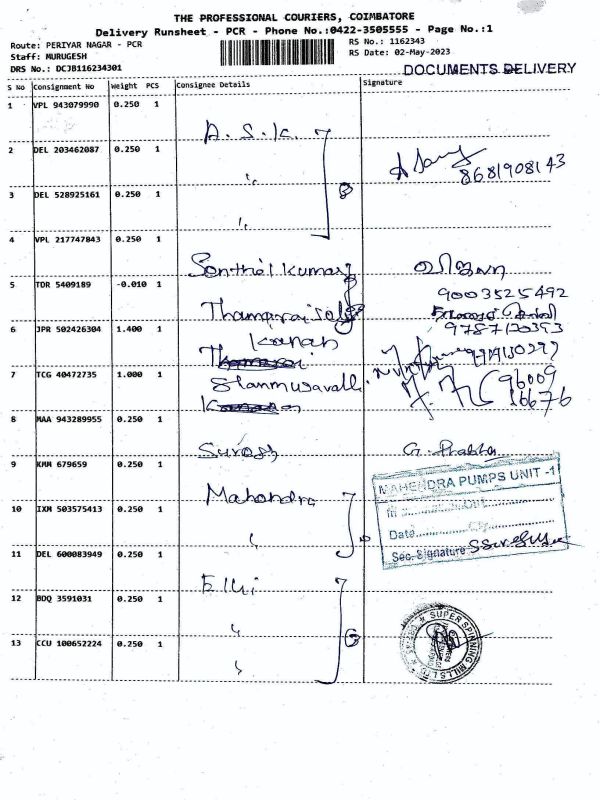 THE PROFESSIONAL COURIERS, COIMBATORE
Delivery Runsheet - PCR - Phone No.:0422-3505555 - Page No.:1
Route: PERIYAR NAGAR - PCR
RS No.: 1162343
Staff: MURUGESH
RS Date: 02-May-2023
DRS No.: DCJB116234301
DOCUMENTS DELIVERY
S No Consignment No Weight PCS Consignee Details Signature
1 VPL 943079990 0.250 1
A. S. K.
2 DEL 203462087 0.250 1
8681908143
3 DEL 528925161 0.250 1
4 VPL 217747843 0.250 1
Senthil Kumar
5 TDR 5409189 -0.010 1
9003525492
Thamarai
6 JPR 502426304 1.400 1
9787120393
Kannan
7 TCG 40472735 1.000 1
96009
16676
8 MAA 943289955 0.250 1
Suresh G. Prabha
9 KMM 679659 0.250 1
Mahendra
MAHENDRA PUMPS UNIT -1
10 IXM 503575413 0.250 1
Date
11 DEL 600083949 0.250 1
Sec. Signature
Elgi
12 BDQ 3591031 0.250 1
SUPER SPINNING MILLS LTD
13 CCU 100652224 0.250 1